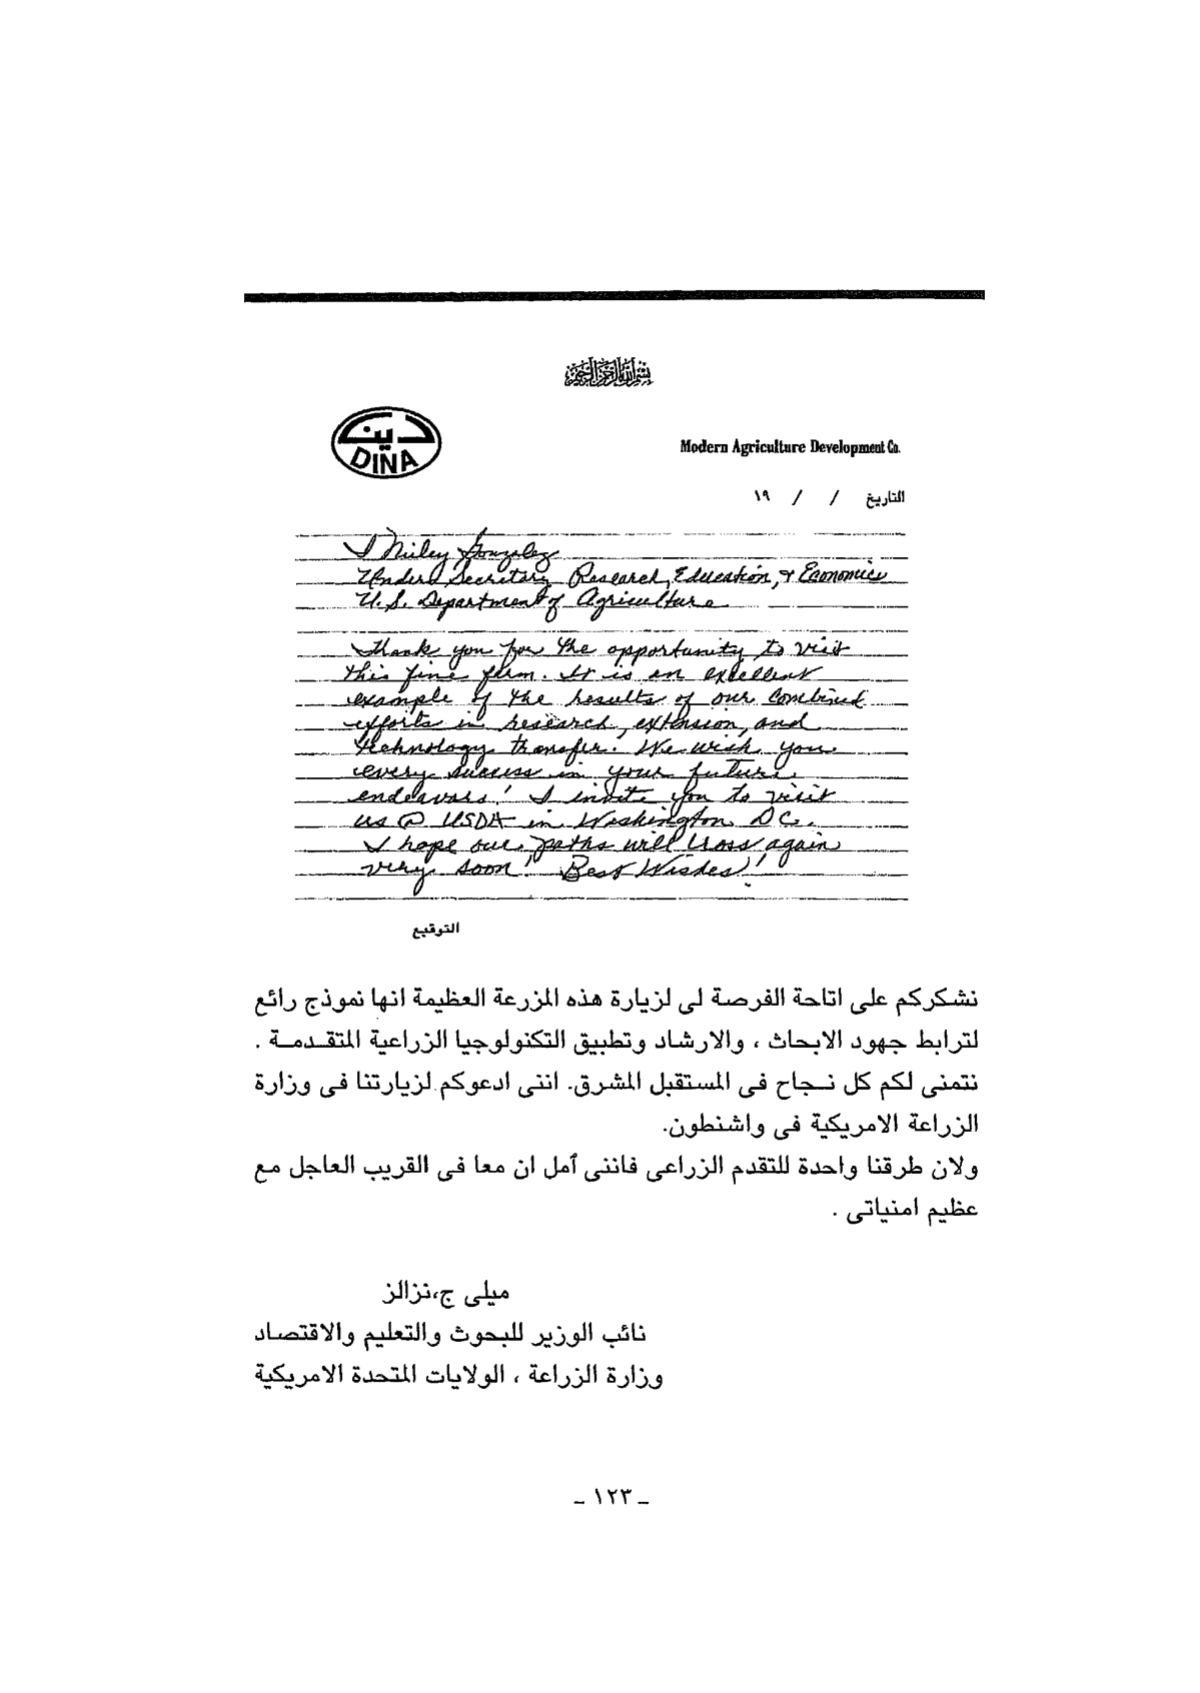 بسم الله الرحمن الرحيم
دينا
DINA
Modern Agriculture Development Co.
التاريخ / / ١٩
I Miley Gonzalez
Under Secretary Research, Education, & Economics
U.S. Department of Agriculture
Thank you for the opportunity to visit
this fine farm. It is an excellent
example of the results of our combined
efforts in research, extension, and
technology transfer. We wish you
every success in your future
endeavors! I invite you to visit
us @ USDA in Washington DC.
I hope our paths will cross again
very soon! Best Wishes!
التوقيع
نشكركم على اتاحة الفرصة لى لزيارة هذه المزرعة العظيمة انها نموذج رائع
لترابط جهود الابحاث ، والارشاد وتطبيق التكنولوجيا الزراعية المتقدمة .
نتمنى لكم كل نجاح فى المستقبل المشرق. اننى ادعوكم لزيارتنا فى وزارة
الزراعة الامريكية فى واشنطون.
ولان طرقنا واحدة للتقدم الزراعى فاننى آمل ان معا فى القريب العاجل مع
عظيم امنياتى .
ميلى ج،نزالز
نائب الوزير للبحوث والتعليم والاقتصاد
وزارة الزراعة ، الولايات المتحدة الامريكية
ـ ١٢٣ ـ